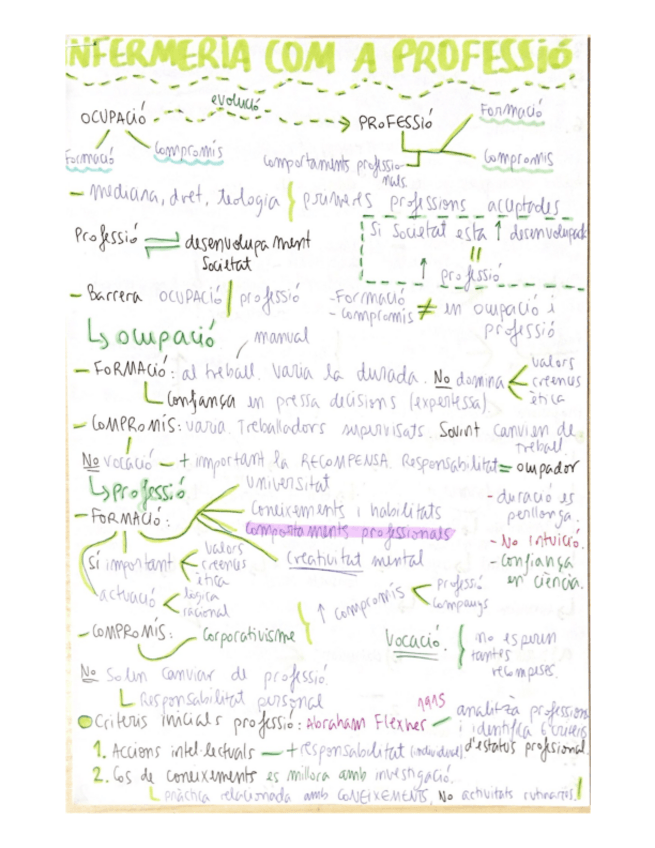 INFERMERIA COM A PROFESSIÓ
OCUPACIÓ evolució PROFESSIÓ Formació
Formació Compromís comportaments professionals Compromís
- medicina, dret, teologia } primeres professions aceptades
Si societat esta ↑ desenvolupada
=
↑ professió
Professió ⇌ desenvolupament Societat
- Barrera OCUPACIÓ | professió
- Formació
- compromís ≠ en ocupació i professió
↳ ocupació
manual
- FORMACIÓ: al treball. Varia la durada. No domina < valors creences ètica
↳ Confiança en pressa decisions (expertessa)
- COMPROMÍS: varia. Treballadors supervisats. Sovint canvien de treball.
No vocació - + important la RECOMPENSA. Responsabilitat = ocupador
↳ professió
- FORMACIÓ:
Universitat
Coneixements i habilitats
Comportaments professionals
Creativitat mental
- duració es perllonga.
- No intuició.
- Confiança en ciència.
Sí important < valors creences ètica
actuació < lògica racional
↑ compromís < professió companys
- COMPROMÍS: Corporativisme
Vocació. { no esperen tantes recompeses.
No solen canviar de professió.
↳ Responsabilitat personal
Criteris inicials professió: Abraham Flexner 1915 - analitza professions i identifica 6 criteris d'estatus profisional
1. Accions intel·lectuals - + responsabilitat (individual)
2. Cos de coneixements es millora amb investigació.
↳ pràctica relacionada amb CONEIXEMENTS. No activitats rutinaries!